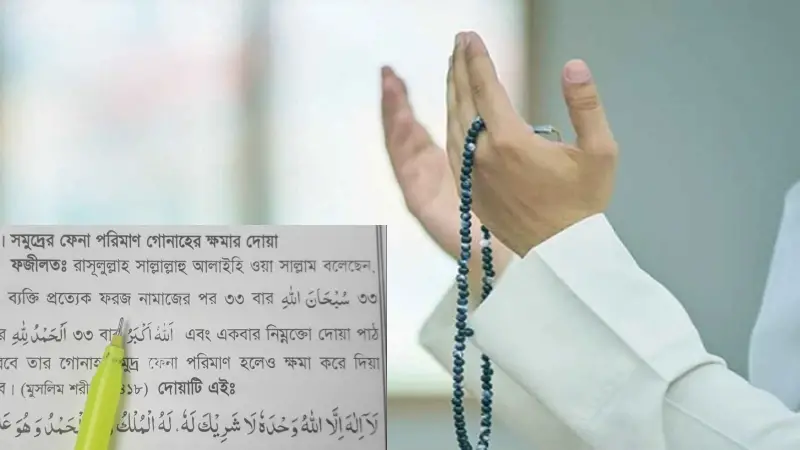 । সমুদ্রের ফেনা পরিমাণ গোনাহের ক্ষমার দোয়া
ফজীলতঃ রাসূলুল্লাহ সাল্লাল্লাহু আলাইহি ওয়া সাল্লাম বলেছেন,
ব্যক্তি প্রত্যেক ফরজ নামাজের পর ৩৩ বার سُبْحَانَ اللهِ ৩৩
র اَلْحَمْدُ لِلّٰهِ ৩৩ বার اَللهُ اَكْبَرُ এবং একবার নিম্নক্তো দোয়া পাঠ
বে তার গোনাহ মুদ্র ফেনা পরিমাণ হলেও ক্ষমা করে দিয়া
ব। (মুসলিম শরী ৪১৮) দোয়াটি এইঃ
لَآ اِلٰهَ اِلَّا اللهُ وَحْدَهٗ لَا شَرِيْكَ لَهٗ. لَهُ الْمُلْكُ الْحَمْدُ وَهُوَ